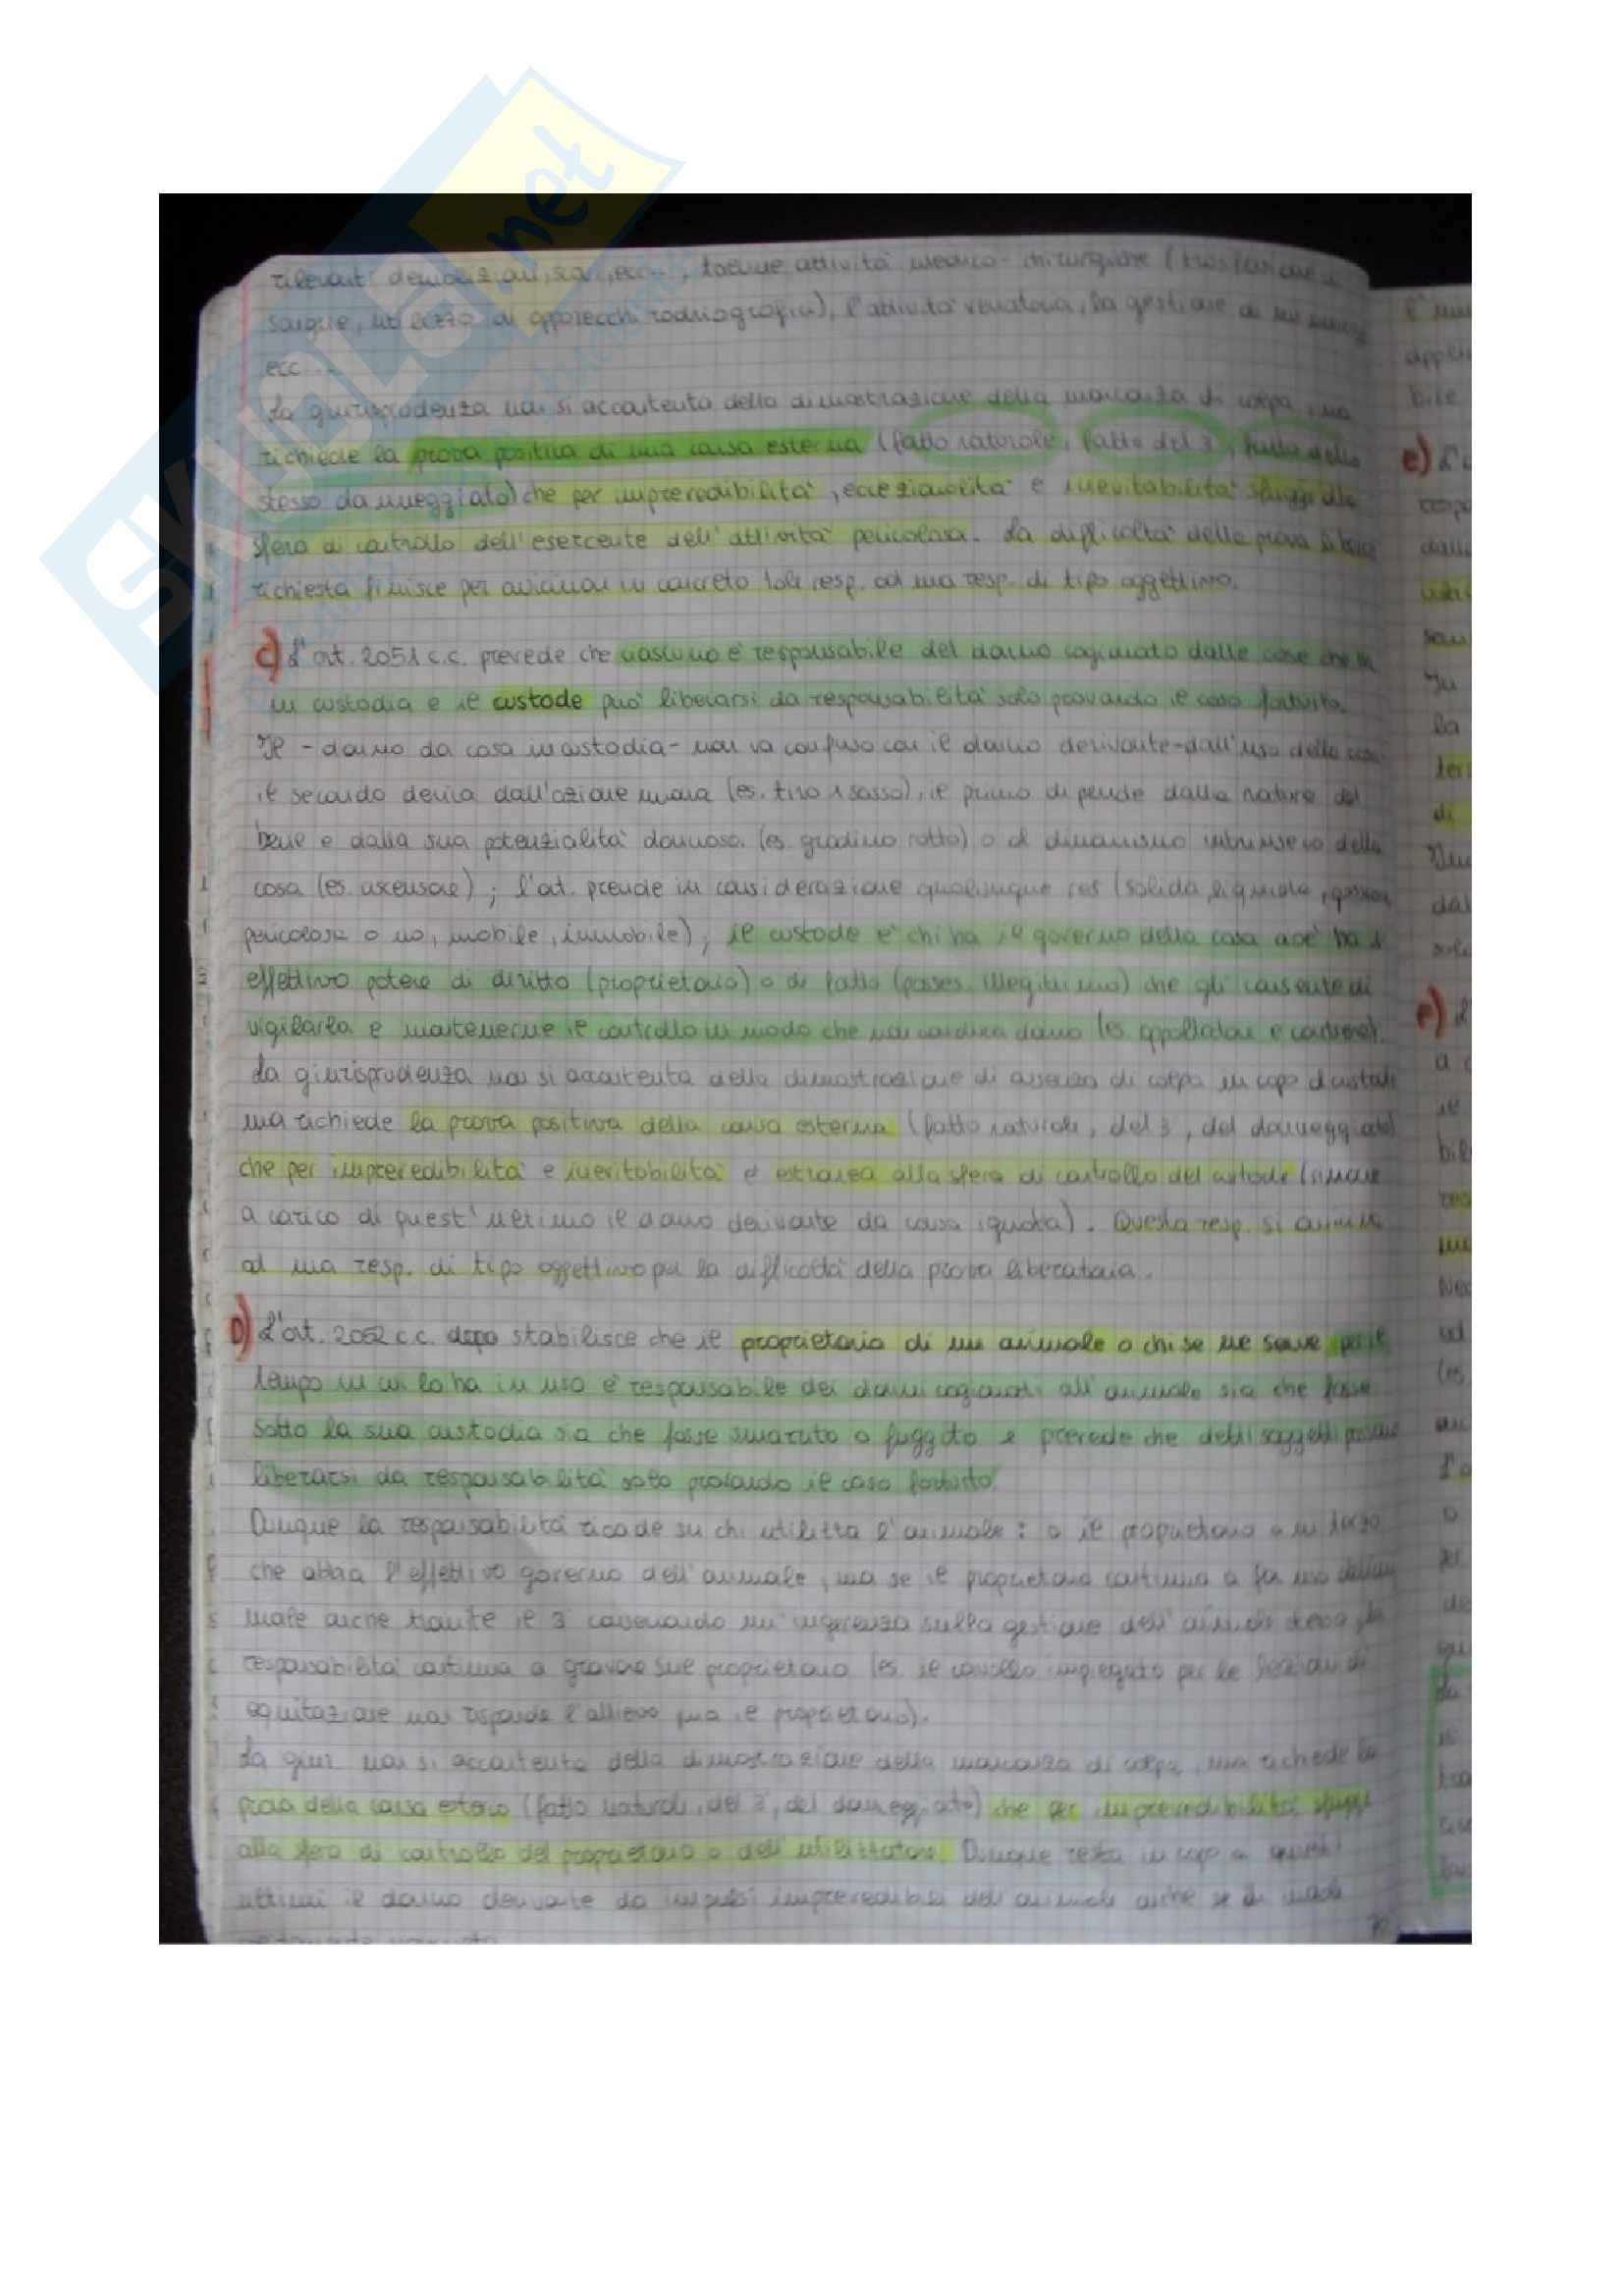 SKUOLA.net
rilevanti demolizioni, scavi, ecc..., talune attività medico-chirurgiche (trasfusione
sangue, utilizzo di apparecchi radiografici), l'attività venatoria, la gestione di un
ecc...
La giurisprudenza non si accontenta della dimostrazione della mancanza di colpa, ma
richiede la prova positiva di una causa esterna (fatto naturale, fatto del 3°, fatto dello
stesso danneggiato) che per imprevedibilità, eccezionalità e inevitabilità sfugga alla
sfera di controllo dell'esercente dell'attività pericolosa. La difficoltà della prova
richiesta finisce per avvicinare in concreto tale resp. ad una resp. di tipo oggettivo.
C) L'art. 2051 c.c. prevede che ciascuno è responsabile del danno cagionato dalle cose che ha
in custodia e il custode può liberarsi da responsabilità solo provando il caso fortuito.
Il - danno da cosa in custodia - non va confuso con il danno derivante dall'uso della cosa:
il secondo deriva dall'azione umana (es. tiro 1 sasso), il primo dipende dalla natura del
bene e dalla sua potenzialità dannosa (es. gradino rotto) o al dinamismo intrinseco della
cosa (es. ascensore); l'art. prende in considerazione qualunque res (solida, liquida, gassosa
pericolosa o no, mobile, immobile); il custode è chi ha il governo della cosa cioè ha 1
effettivo potere di diritto (proprietario) o di fatto (posses. illegittimo) che gli consente di
vigilarla e mantenerne il controllo in modo che non produca danno (es. appaltatore e cantiere).
La giurisprudenza non si accontenta della dimostrazione di assenza di colpa in capo al custode
ma richiede la prova positiva della causa esterna (fatto naturale, del 3°, del danneggiato)
che per imprevedibilità e inevitabilità è estranea alla sfera di controllo del custode (rimane
a carico di quest'ultimo il danno derivante da causa ignota). Questa resp. si avvicina
ad una resp. di tipo oggettivo per la difficoltà della prova liberatoria.
D) L'art. 2052 c.c. dopo stabilisce che il proprietario di un animale o chi se ne serve per il
tempo in cui lo ha in uso è responsabile dei danni cagionati all'animale sia che fosse
sotto la sua custodia sia che fosse smarrito o fuggito e prevede che detti soggetti possano
liberarsi da responsabilità solo provando il caso fortuito.
Dunque la responsabilità ricade su chi utilizza l'animale: o il proprietario o un terzo
che abbia l'effettivo governo dell'animale, ma se il proprietario continua a far uso dell'ani
male anche tramite il 3° conservando un'ingerenza sulla gestione dell'animale stesso, la
responsabilità continua a gravare sul proprietario (es. il cavallo impiegato per le lezioni di
equitazione non risponde l'allievo ma il proprietario).
La giur. non si accontenta della dimostrazione della mancanza di colpa, ma richiede la
prova della causa esterna (fatto naturale, del 3°, del danneggiato) che per imprevedibilità sfugge
alla sfera di controllo del proprietario o dell'utilizzatore. Dunque resta in capo a questi
ultimi il danno derivante da impulsi imprevedibili dell'animale anche se di